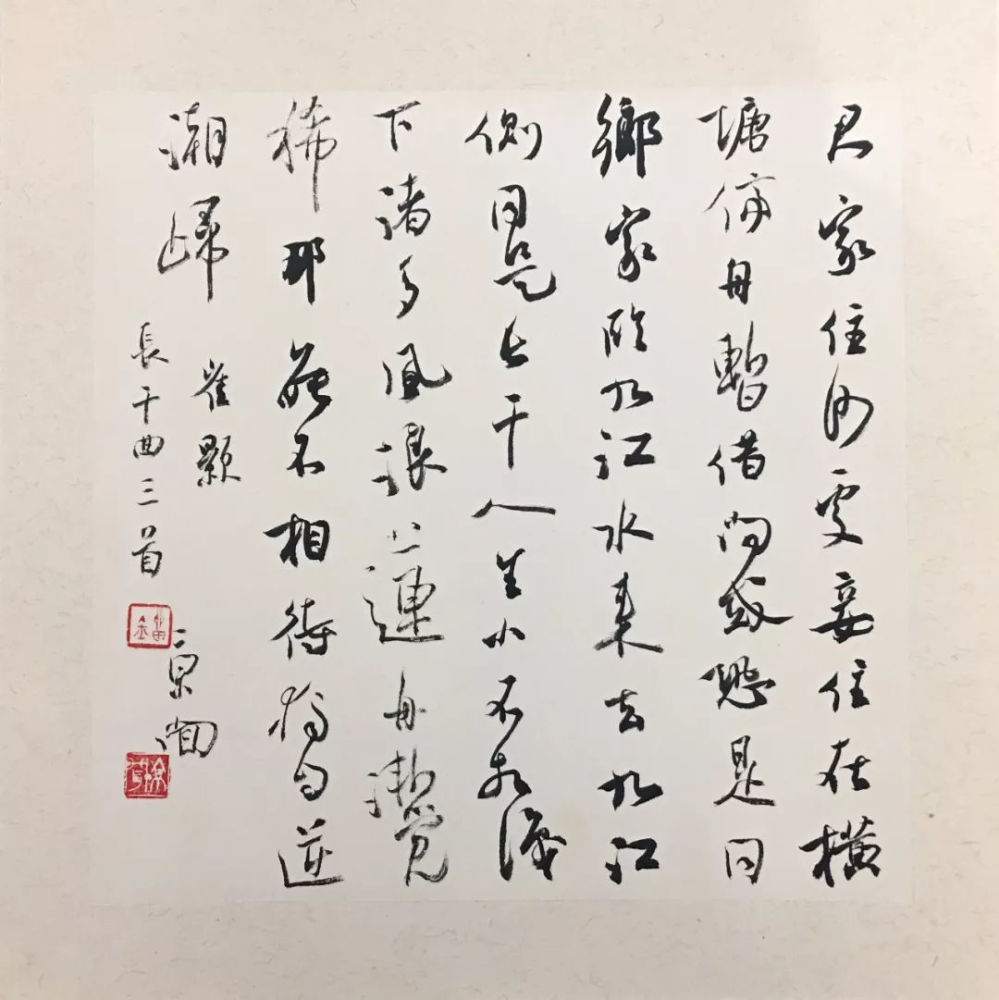 君家住何處妾住在橫
塘停舟暫借問或恐是同
鄉家臨九江水來去九江
側同是長干人生小不相識
下渚多風浪蓮舟漸覺
稀那能不相待獨自逆
潮歸
崔顥
長干曲三首